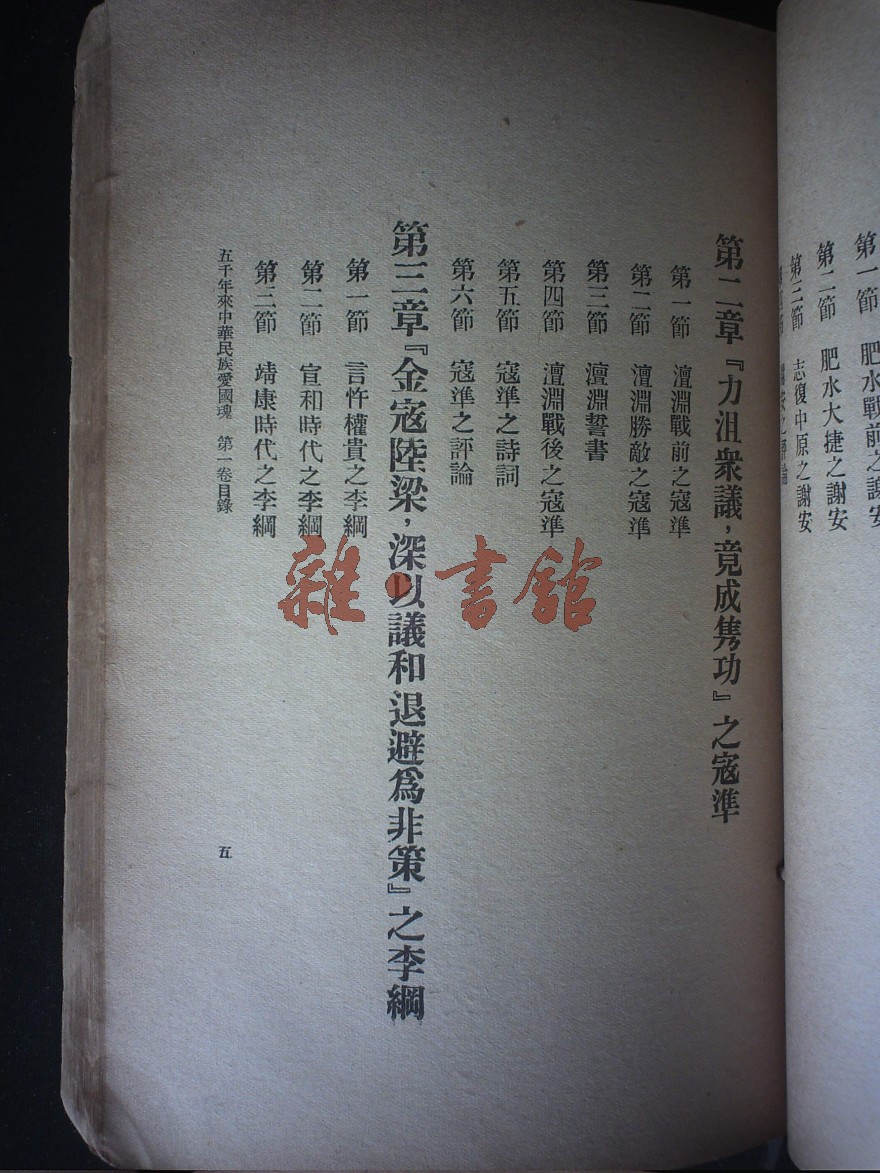 第一節　肥水戰前之謝安
第二節　肥水大捷之謝安
第三節　志復中原之謝安
第二章『力沮衆議，竟成隽功』之寇準
第一節　澶淵戰前之寇準
第二節　澶淵勝敵之寇準
第三節　澶淵誓書
第四節　澶淵戰後之寇準
第五節　寇準之詩詞
第六節　寇準之評論
第三章『金寇陸梁，深以議和退避爲非策』之李綱
第一節　言忤權貴之李綱
第二節　宣和時代之李綱
第三節　靖康時代之李綱
五千年來中華民族愛國魂　第一卷目錄
五
雜·書舘